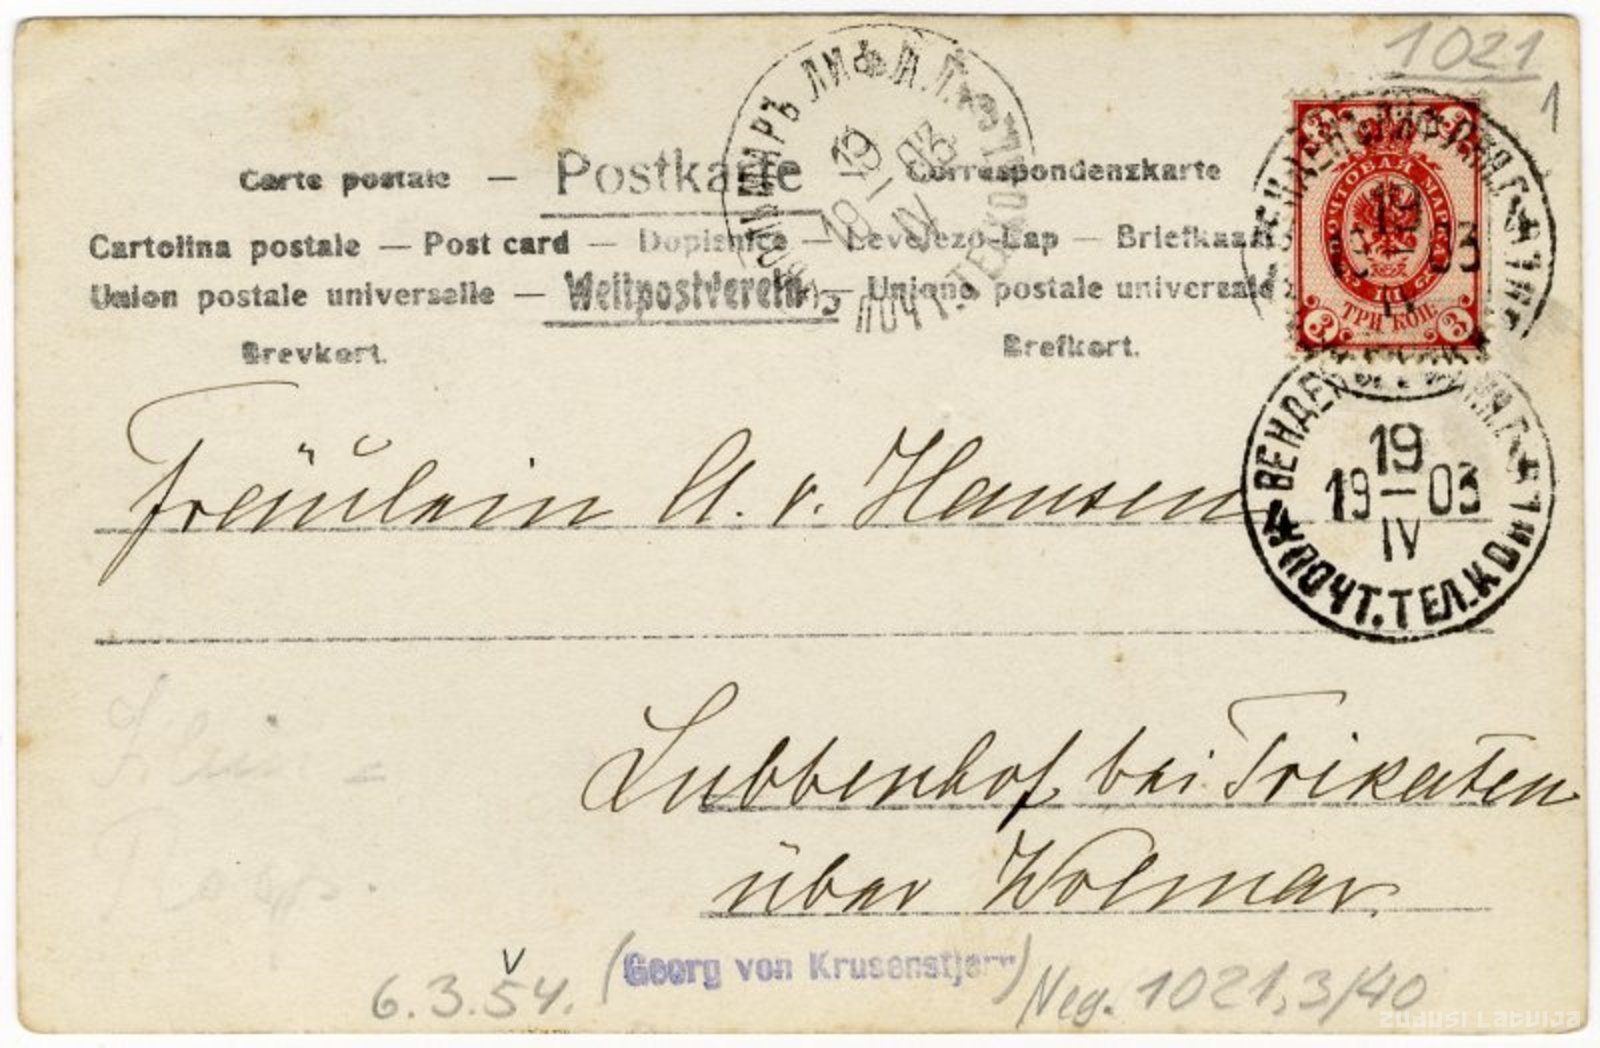 1021
1
Carte postale — Postkarte — Correspondenzkarte
Cartolina postale — Post card — Dopisnice — Levelezo-Lap — Briefkaart
Union postale universelle — Weltpostverein — Unione postale universale
Brevkort. Brefkort.
ПОЧТОВАЯ МАРКА
3 ТРИ КОП. 3
19
19 — 03
IV
ПОЧТ. ТЕЛ. КО
ВЕНДЕН
19
19 — 03
IV
ПОЧТ. ТЕЛ. КОН
Fräulein A. v. Hansen
Lubbenhof bei Trikaten
über Wolmar.
6.3.54. (Georg von Krusenstjern) Neg. 1021,3/40
zudusi latvija